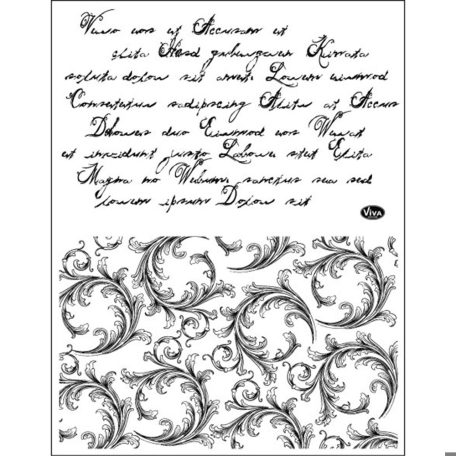 Vero eos et Accusam et
Clita Kasd gubergren Kimata
soluta dolou sit amet Lorem eiumod
Consetetur sadipscing Alitu at Accus
Dolores duo Eiumod eos
et invidunt justo Labore stet Elita
Magna no sanctus sea sed
lorem ipsum Dolou sit
VIVA